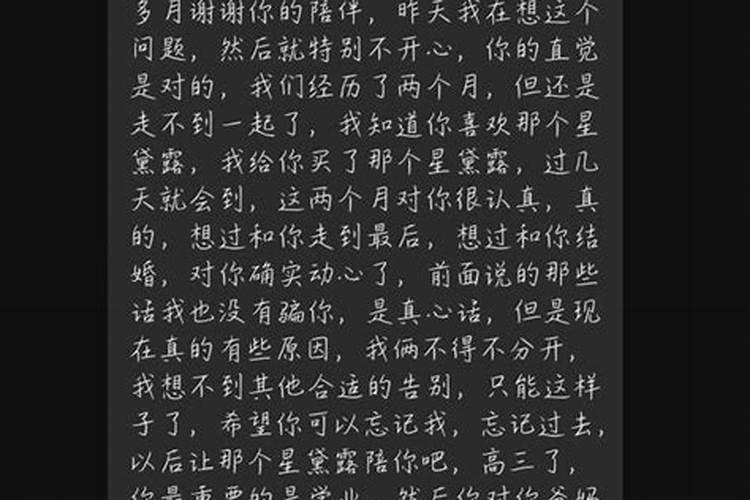 多月谢谢你的陪伴，昨天我在想这个
问题，然后就特别不开心，你的直觉
是对的，我们经历了两个月，但还是
走不到一起了，我知道你喜欢那个星
黛露，我给你买了那个星黛露，过几
天就会到，这两个月对你很认真，真
的，想过和你走到最后，想过和你结
婚，对你确实动心了，前面说的那些
话我也没有骗你，是真心话，但是现
在真的有些原因，我俩不得不分开，
我想不到其他合适的告别，只能这样
子了，希望你可以忘记我，忘记过去，
以后让那个星黛露陪你吧，高三了，
你最重要的是学业，然后你对你爸妈